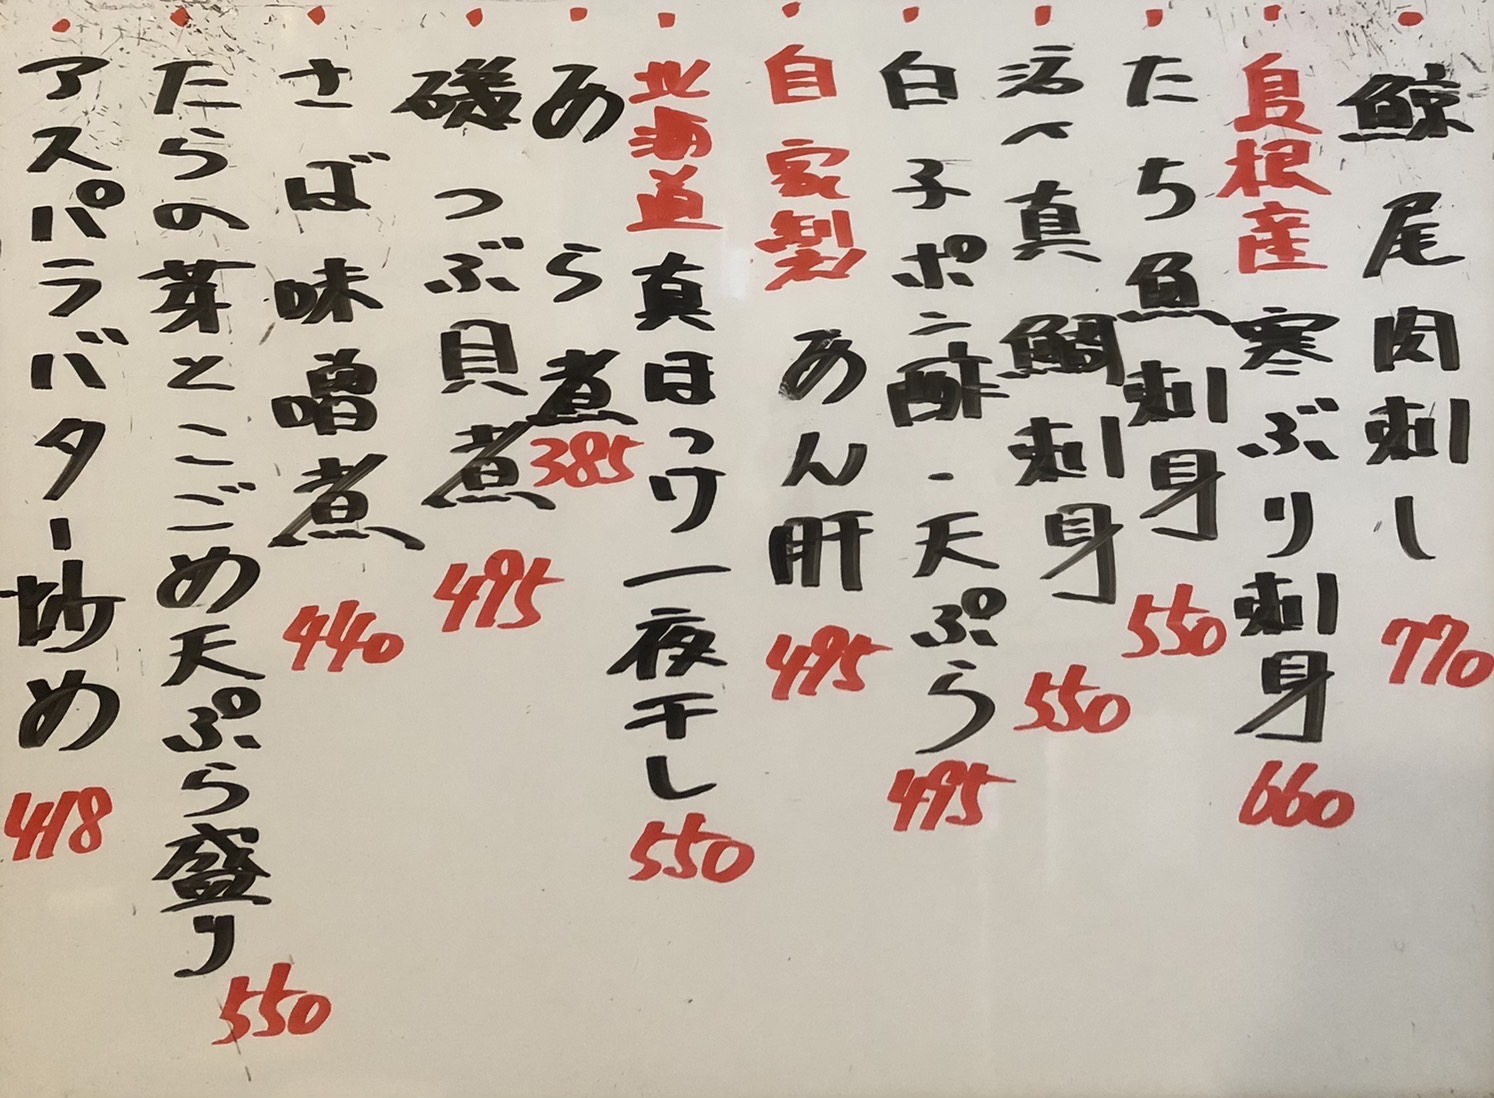 鯨尾肉刺し 770
島根産寒ぶり刺身 660
たち魚刺身 550
活〆真鯛刺身 550
白子ポン酢・天ぷら 495
自家製あん肝 495
北海道真ほっけ一夜干し 550
あら煮 385
磯つぶ貝煮 495
さば味噌煮 440
たらの芽とこごめ天ぷら盛り 550
アスパラバター炒め 418